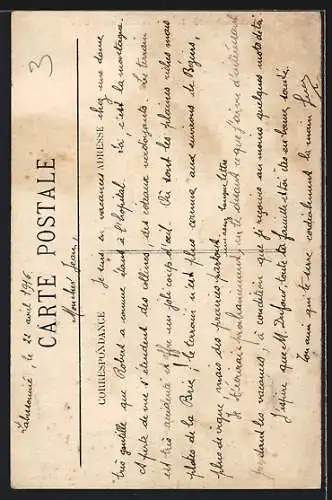 3
CARTE POSTALE
CORRESPONDANCE
ADRESSE
le 22 avril 1916.
Mon cher Jean,
Je suis en vacances chez une dame
très gentille que Robert a connue étant à l'hôpital. Ici, c'est la montagne.
A perte de vue s'étendent des collines, des coteaux verdoyants. Le terrain
est très accidenté et offre un joli coup d'œil. Où sont les plaines riches mais
plates de la Brie; le terrain n'est plus comme aux environs de Béziers,
plus de vigne, mais des prairies partout
une longue lettre
Je t'écrirai prochainement, en te disant ce que j'aurai d'intéressant
pendant les vacances, à condition que je reçoive au moins quelques mots de toi
J'espère que M. Dufour, toute ta famille et toi êtes en bonne santé.
Ton ami qui te serre cordialement la main